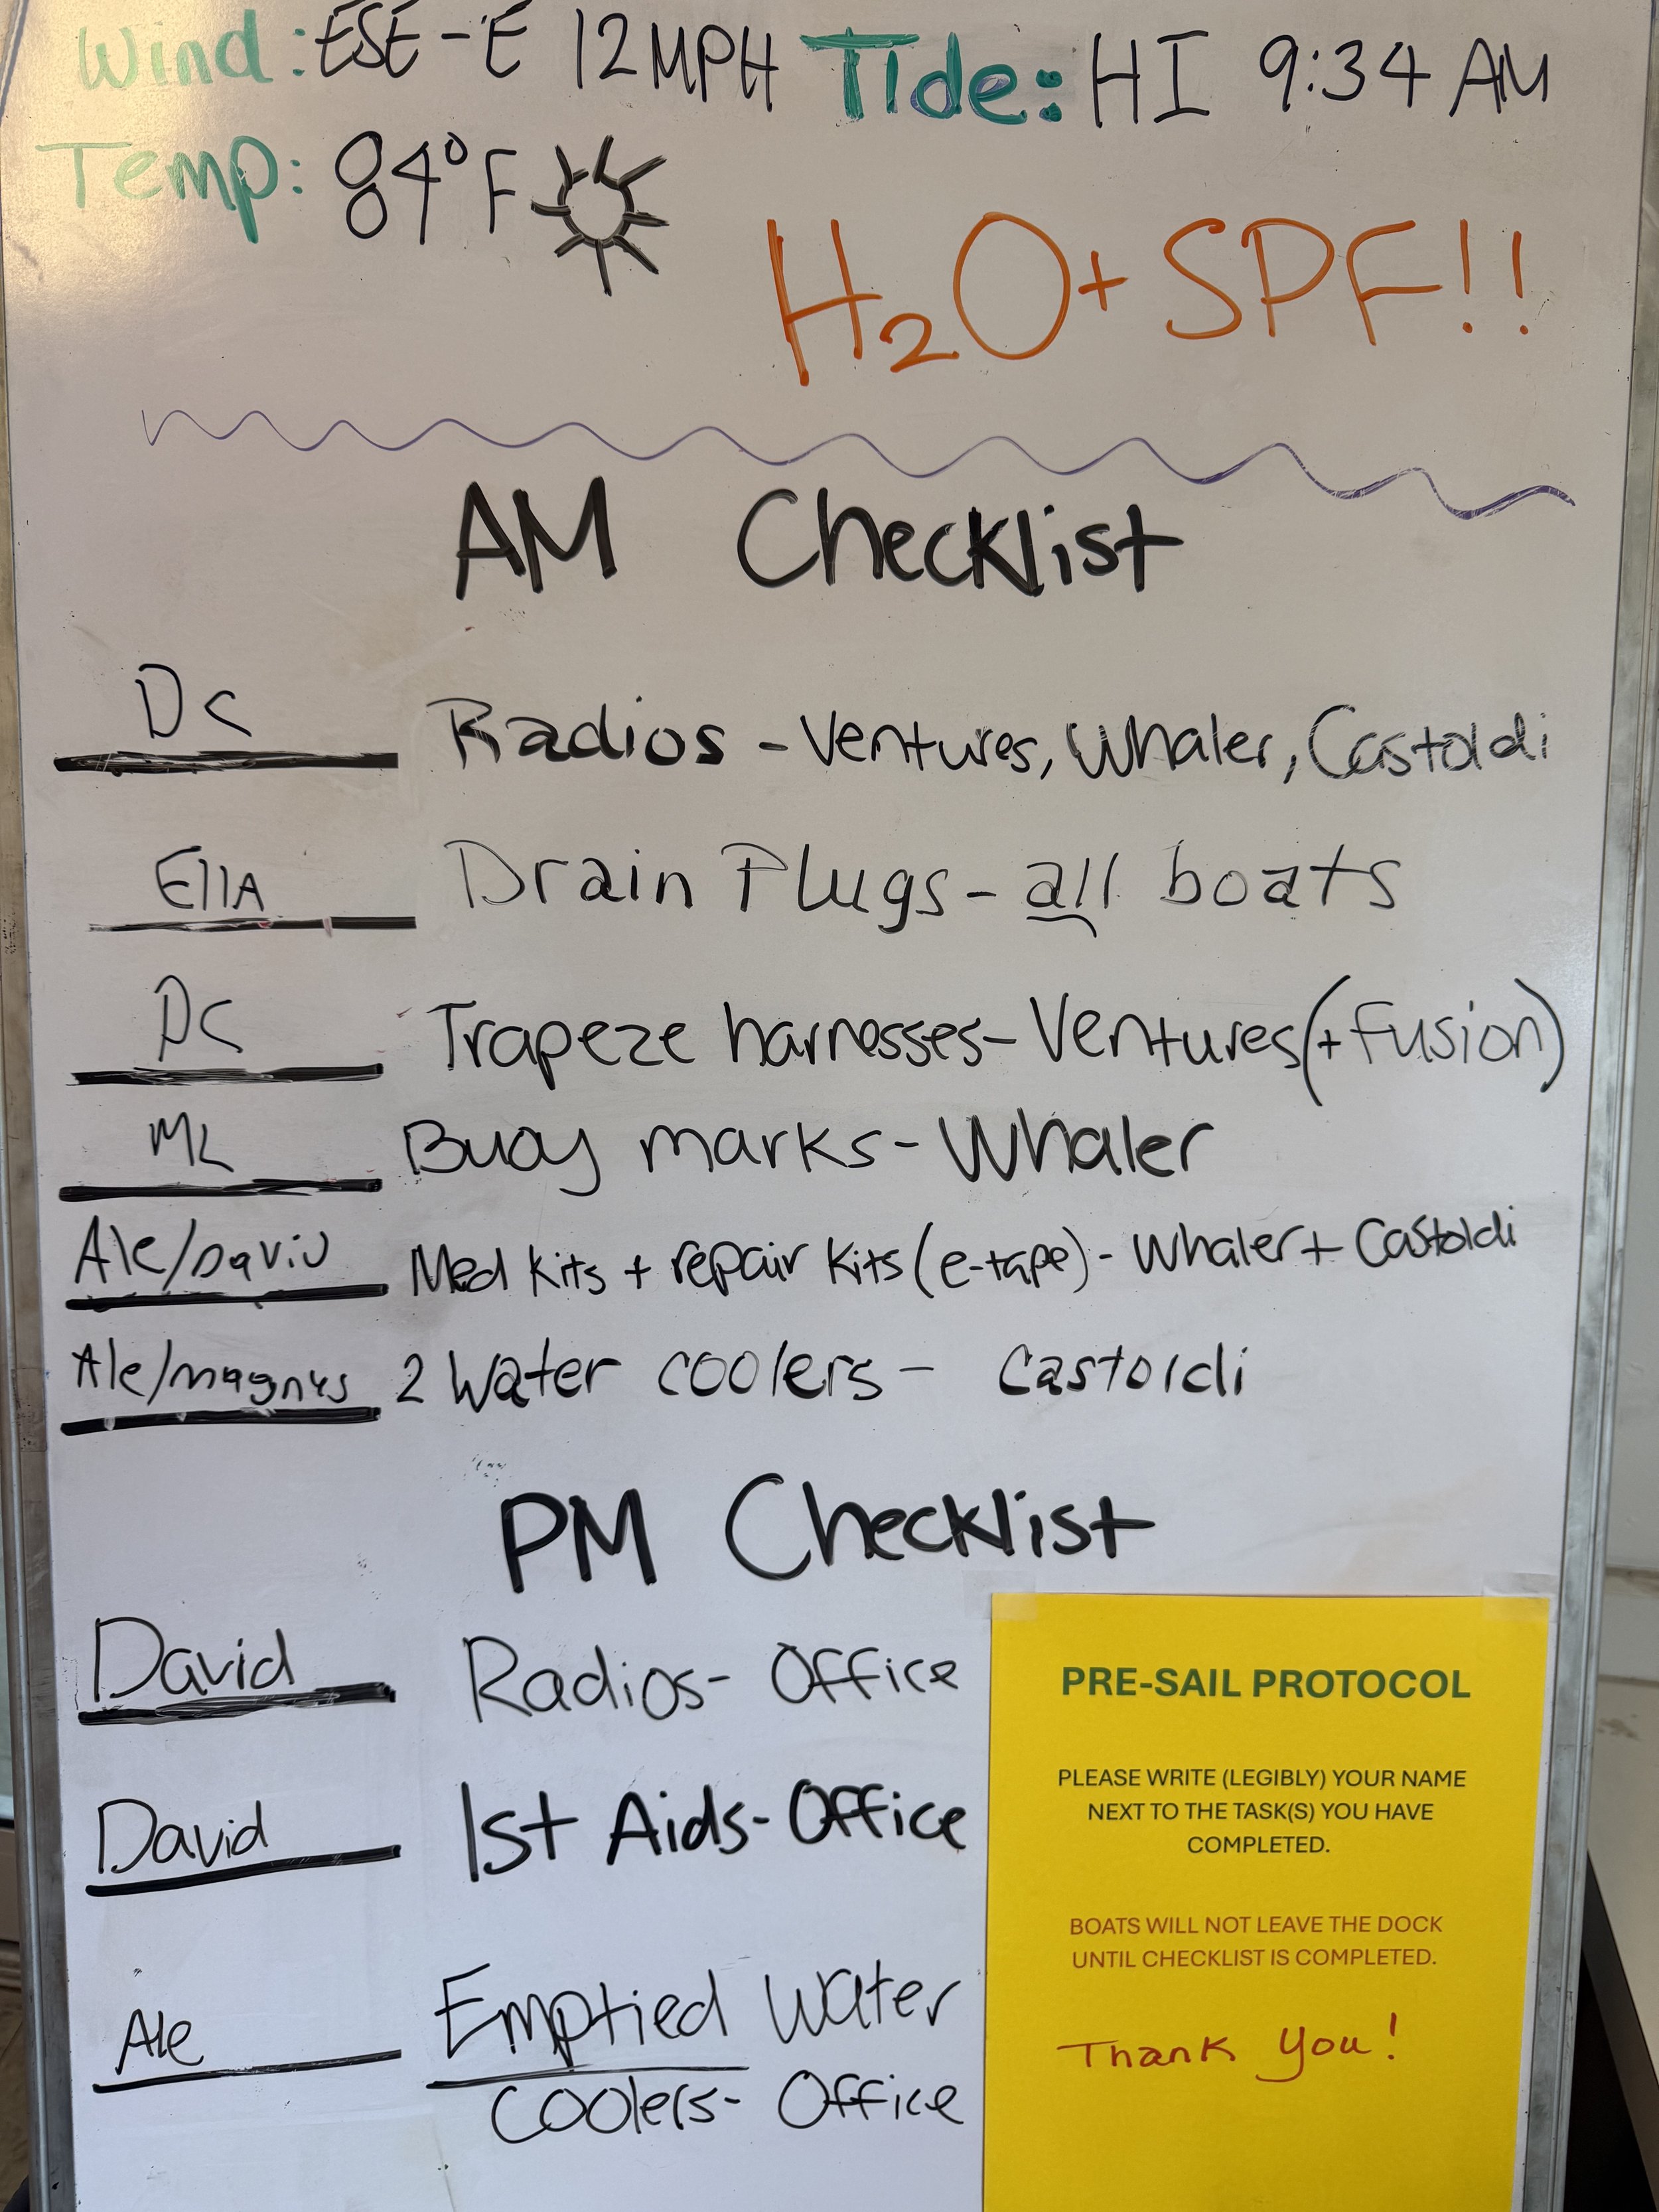 Wind: ESE-E 12MPH Tide: HI 9:34 AM
Temp: 84°F
H₂O + SPF!!
AM Checklist
DC Radios - Ventures, Whaler, Castoldi
Ella Drain Plugs - all boats
DC Trapeze harnesses - Ventures (+ Fusion)
ML Buoy marks - Whaler
Ale/David Med kits + repair kits (e-tape) - Whaler + Castoldi
Ale/magnus 2 Water coolers - Castoldi
PM Checklist
David Radios - Office
David 1st Aids - Office
Ale Emptied Water
Coolers - Office
PRE-SAIL PROTOCOL
PLEASE WRITE (LEGIBLY) YOUR NAME
NEXT TO THE TASK(S) YOU HAVE
COMPLETED.
BOATS WILL NOT LEAVE THE DOCK
UNTIL CHECKLIST IS COMPLETED.
Thank You!